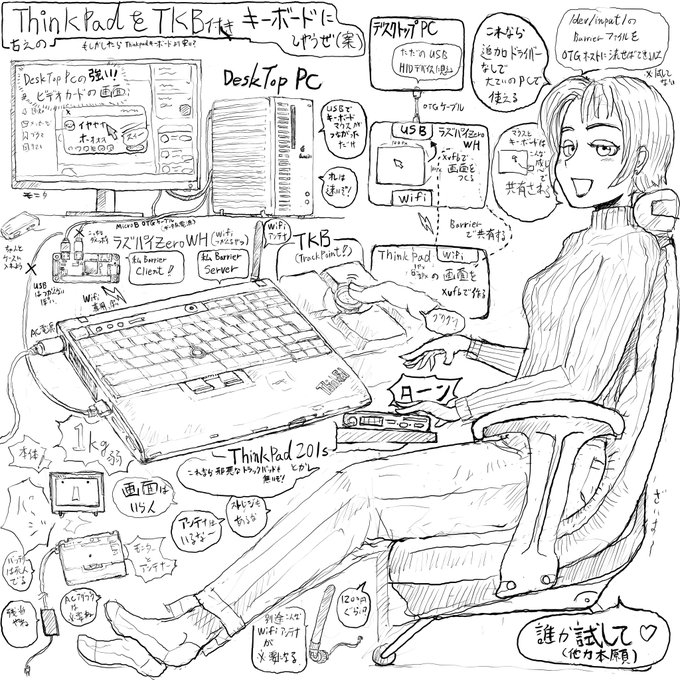 ThinkPadをTKB付きキーボードに
しやうぜ(案)
ちえの
もしかしたらThinkpadキーボード
DeskTop PCの強い!
ビデオカードの画面
イヤヤイ
モニタ
DeskTop PC
USBで
キーボード
マウスが
つながった
だけ
れは
速いぞ!
デスクトップPC
ただのUSB
HIDデバイスに見え
OTGケーブル
USB
ラズパイZero
WH
Xvfbで
画面を
つくる
Wifi
Barrier
で共有する
ThinkPad
Wifi
の画面を
Xvfbで作る
これなら
追加ドライバー
なしで
たいていのPCで
使える
/dev/input/の
Barrierファイルを
OTGホストに流せばできんじゃ
※試して
ない
マウスと
キーボードは
こんな
感じで
共有される
MicroB OTGケーブル
ラズパイZero WH
私Barrier
Client!
私Barrier
Server
Wifi
アンテナ
TKB
(TrackPoint!)
ちゃんと
ケースに
入れよう
USB
はつかんない
Wifi
専用
AC電源
グリグリ
ThinkPad
ターン
1kg弱
本体
バキ
画面は
いらん
ThinkPad 201s
これなら邪悪なトラックパッドも
無いぞ!
とか
ストレージも
あるな
アンテナは
いるな〜
モニターと
アンテナー
バッテリー
は死んでる
ACアダプタは
必要ね
別途こんな
Wifiアンテナ
が
必要になる
120円
ぐらい?
誰か試して♡
(他力本願)